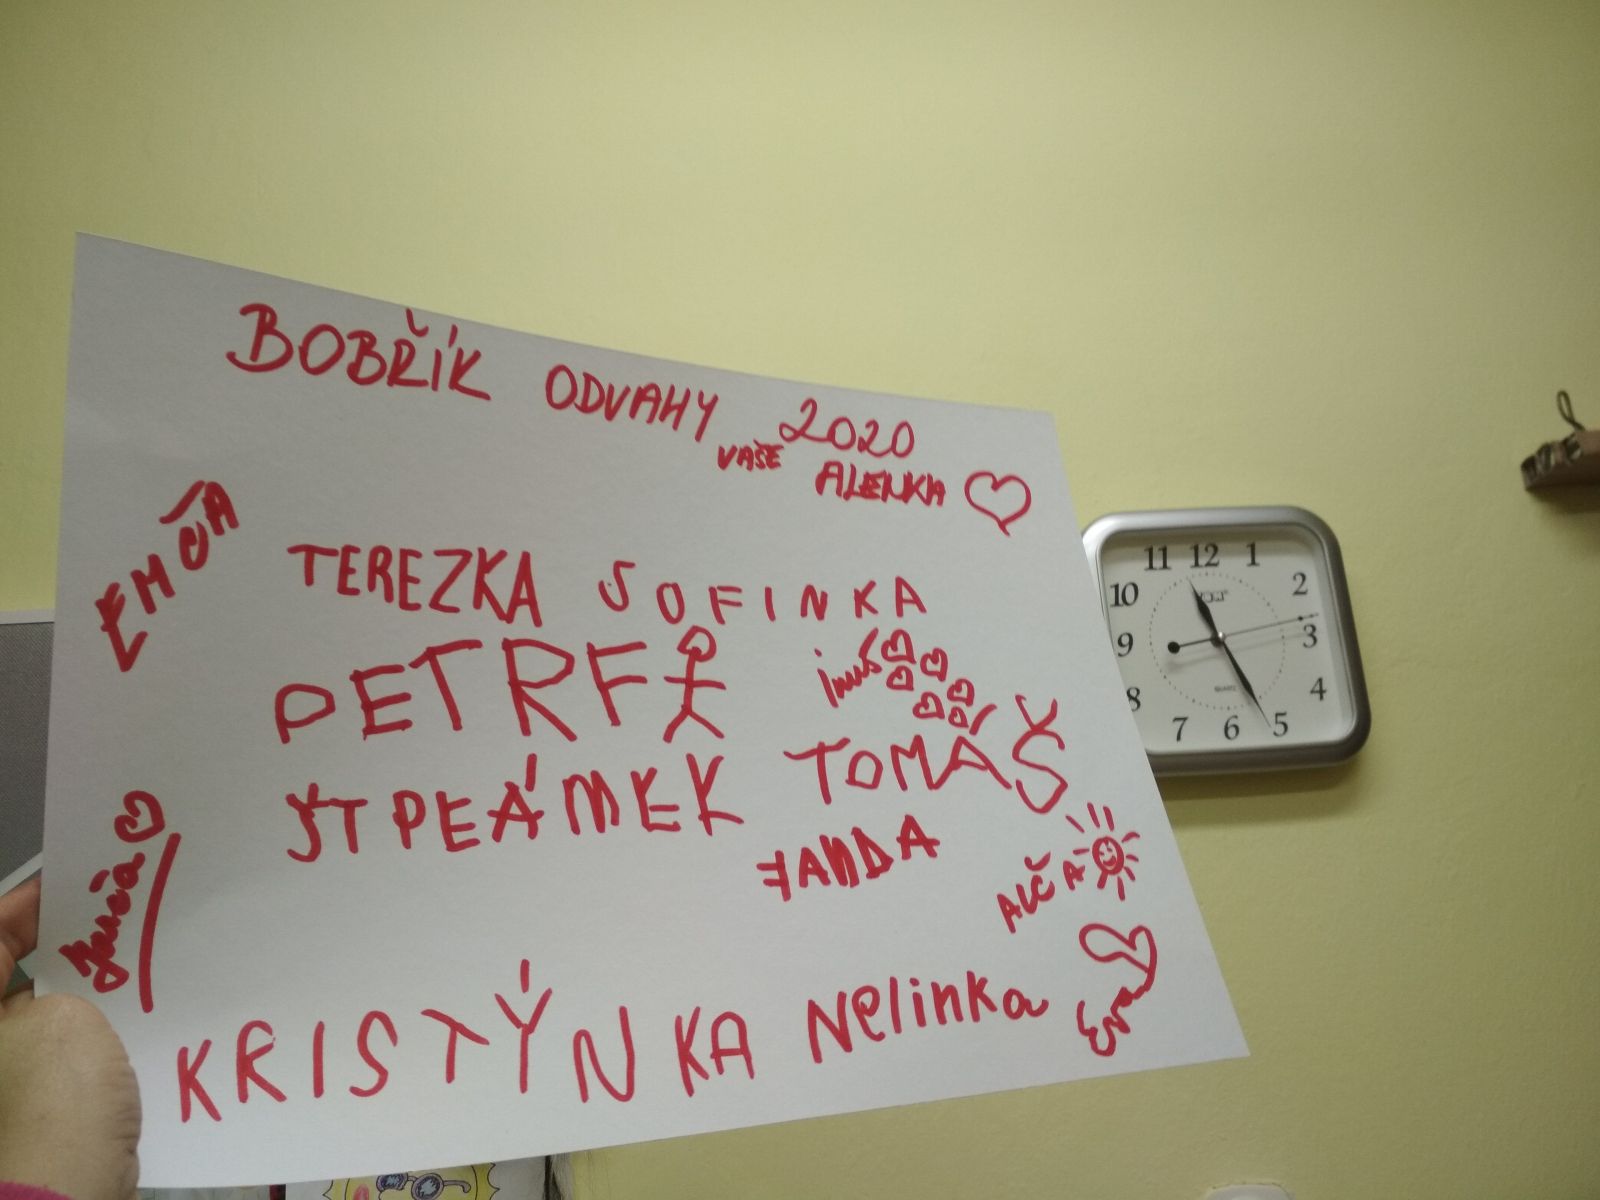 BOBŘÍK ODVAHY 2020
VAŠE ALENKA
TEREZKA SOFINKA
PETRF
TOMÁŠ
ŠTPEÁMEK
JANDA
ALČA
KRISTÝNKA Nelinka
Eva
11 12 1
10 2
9 3
8 4
7 6 5
QUARTZ